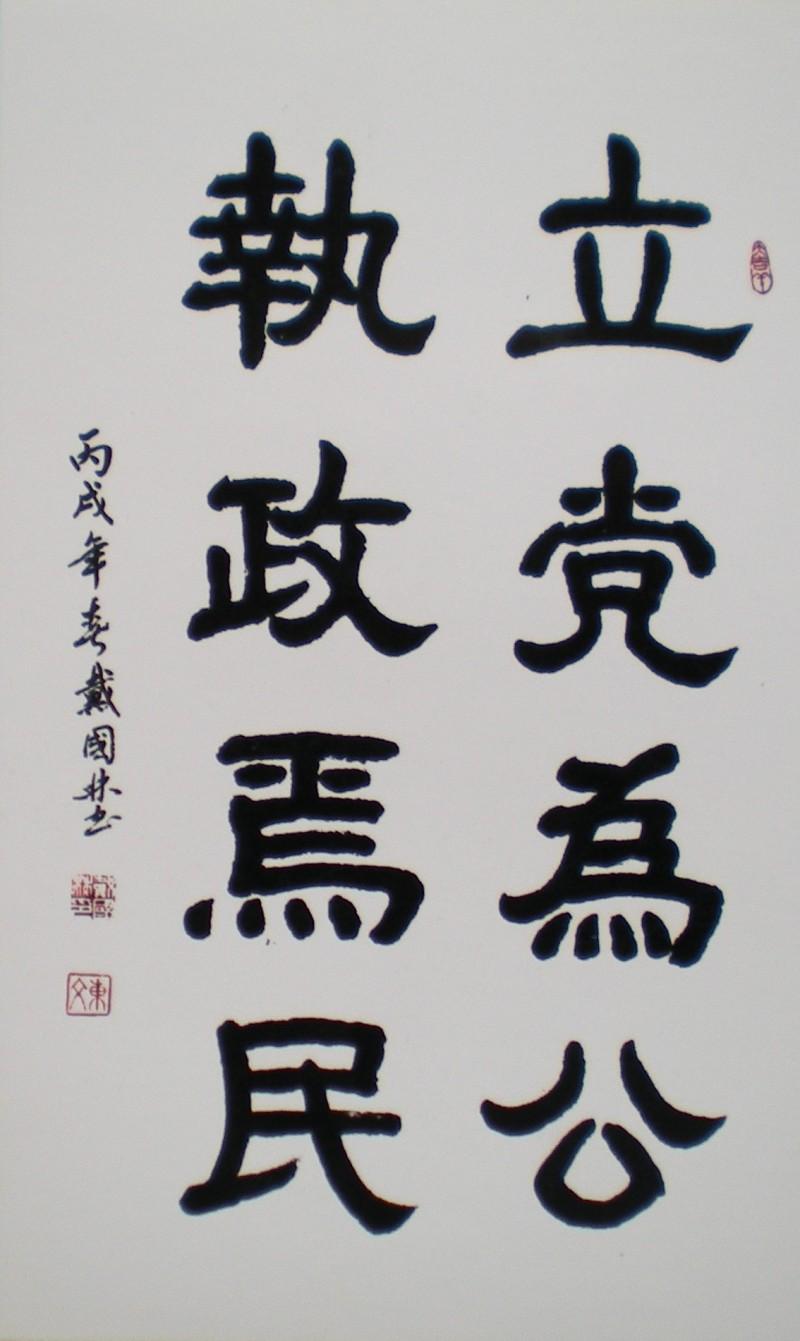 立党為公
執政爲民
丙戌年春戴國林书